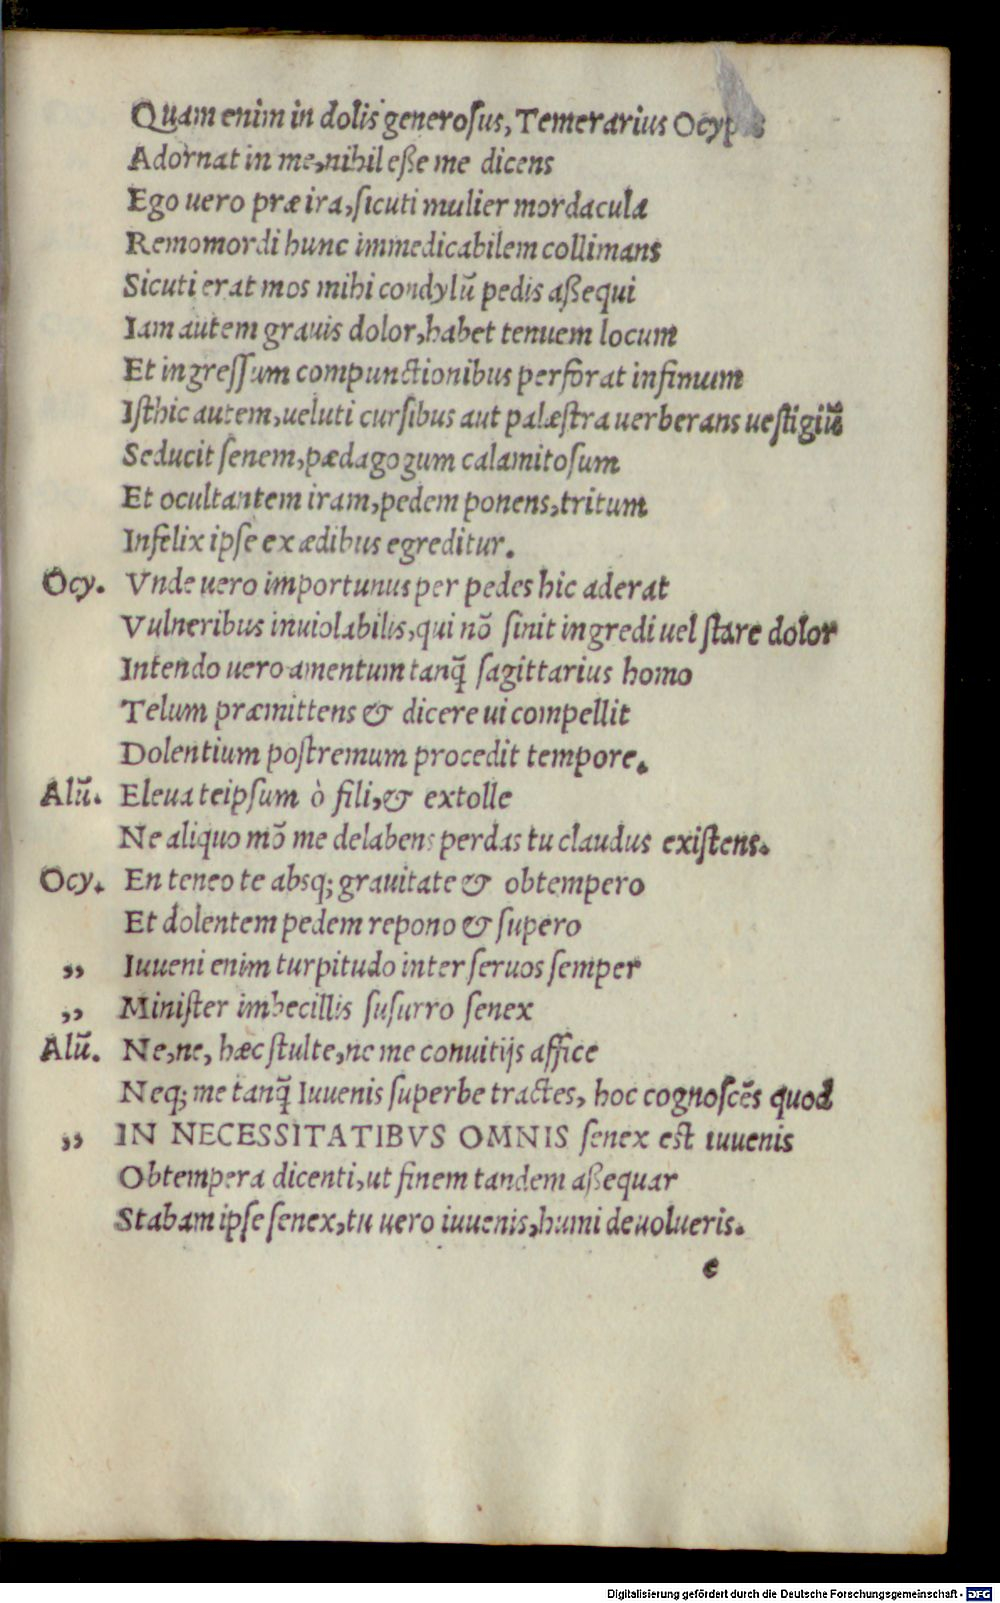 Quam enim in dolis generosus, Temerarius
Adornat in me, nihil eße me dicens
Ego uero præ ira, sicuti mulier mordacula
Remomordi hunc immedicabilem collimans
Sicuti erat mos mihi condylũ pedis aßequi
Iam autem grauis dolor, habet tenuem locum
Et ingressum compunctionibus perforat infimum
Isthic autem, ueluti cursibus aut palæstra uerberans uestigiũ
Seducit senem, pædagogum calamitosum
Et ocultantem iram, pedem ponens, tritum
Infelix ipse ex ædibus egreditur.
Ocy. Vnde uero importunus per pedes hic aderat
Vulneribus inuiolabilis, qui nõ sinit ingredi uel stare dolor
Intendo uero amentum tanq̃ sagittarius homo
Telum præmittens & dicere ui compellit
Dolentium postremum procedit tempore.
Alũ. Eleua teipsum ò fili, & extolle
Ne aliquo mõ me delabens perdas tu claudus existens.
Ocy. En teneo te absq; grauitate & obtempero
Et dolentem pedem repono & supero
„ Iuueni enim turpitudo inter seruos semper
„ Minister imbecillis susurro senex
Alũ. Ne, ne, hæc stulte, ne me conuitijs affice
Neq; me tanq̃ Iuuenis superbe tractes, hoc cognoscẽs quod
„ IN NECESSITATIBVS OMNIS senex est iuuenis
Obtempera dicenti, ut finem tandem aßequar
Stabam ipse senex, tu uero iuuenis, humi deuolueris.
e
Digitalisierung gefördert durch die Deutsche Forschungsgemeinschaft - DFG